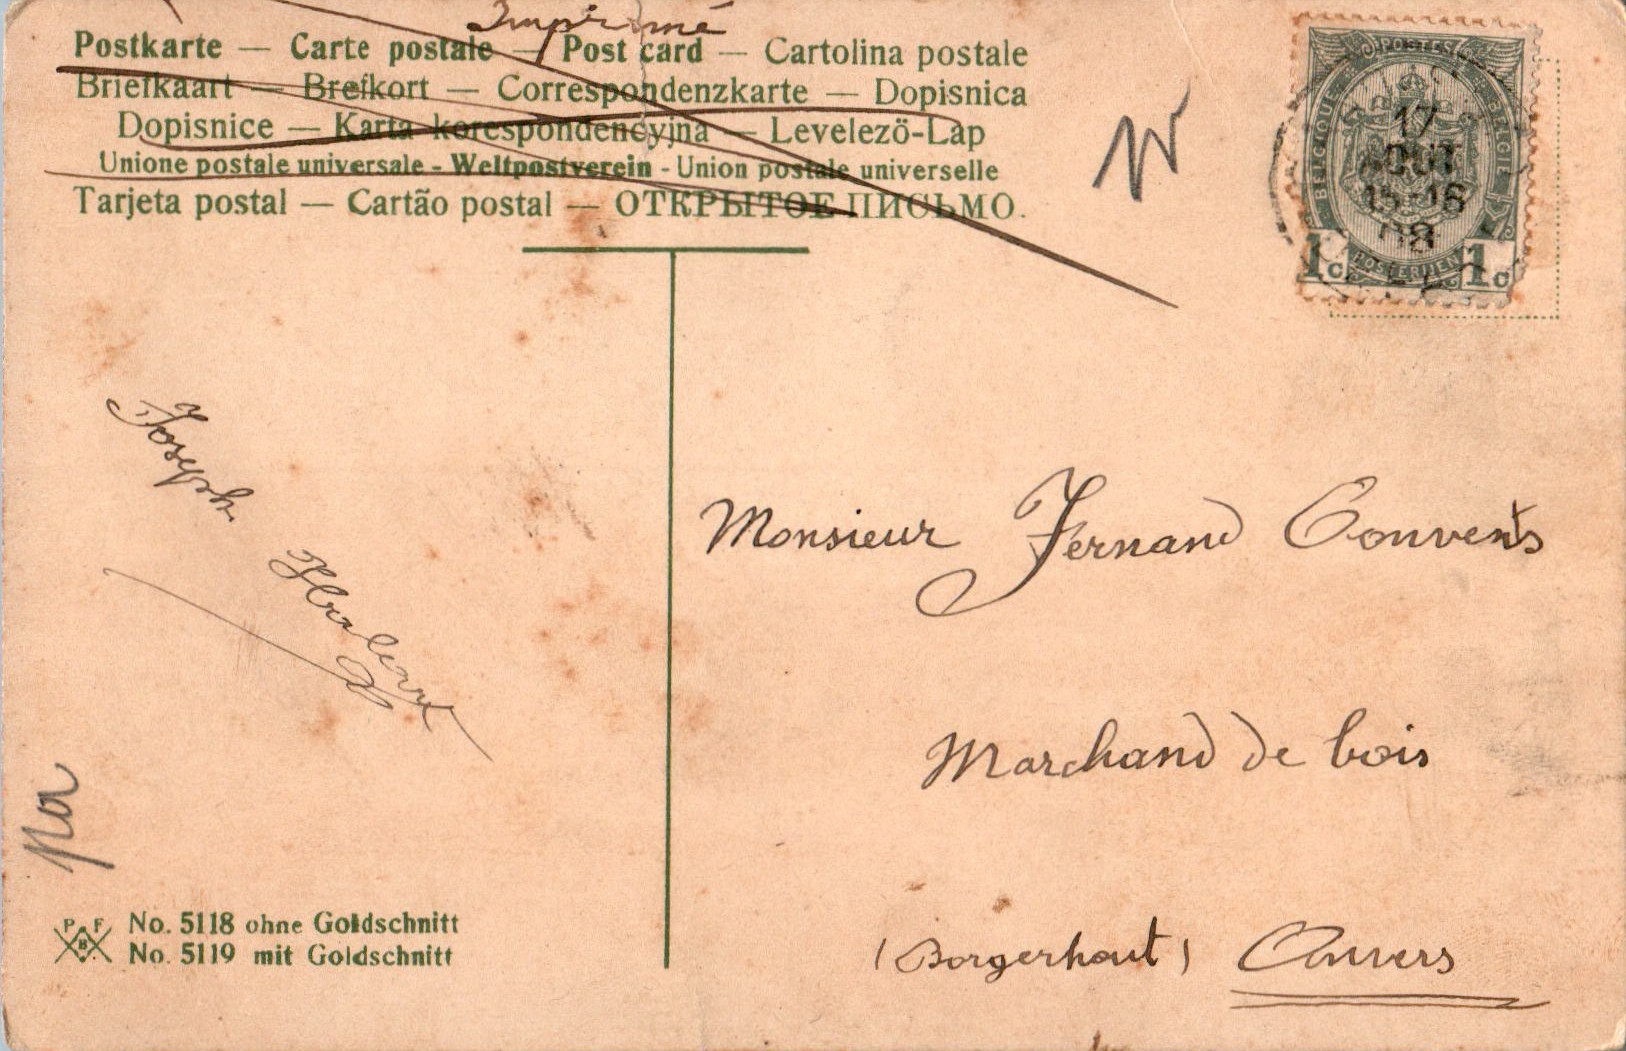 Imprimé
Postkarte — Carte postale — Post card — Cartolina postale
Briefkaart — Brefkort — Correspondenzkarte — Dopisnica
Dopisnice — Karta korespondencyjna — Levelezö-Lap
Unione postale universale - Weltpostverein - Union postale universelle
Tarjeta postal — Cartão postal — ОТКРЫТОЕ ПИСЬМО.
POSTES
BELGIQUE
BELGIË
17
AOUT
15-16
08
1c POSTERIJEN 1c
Joseph
Monsieur Fernand Convents
Marchand de bois
(Borgerhout) Anvers
P F
B
No. 5118 ohne Goldschnitt
No. 5119 mit Goldschnitt